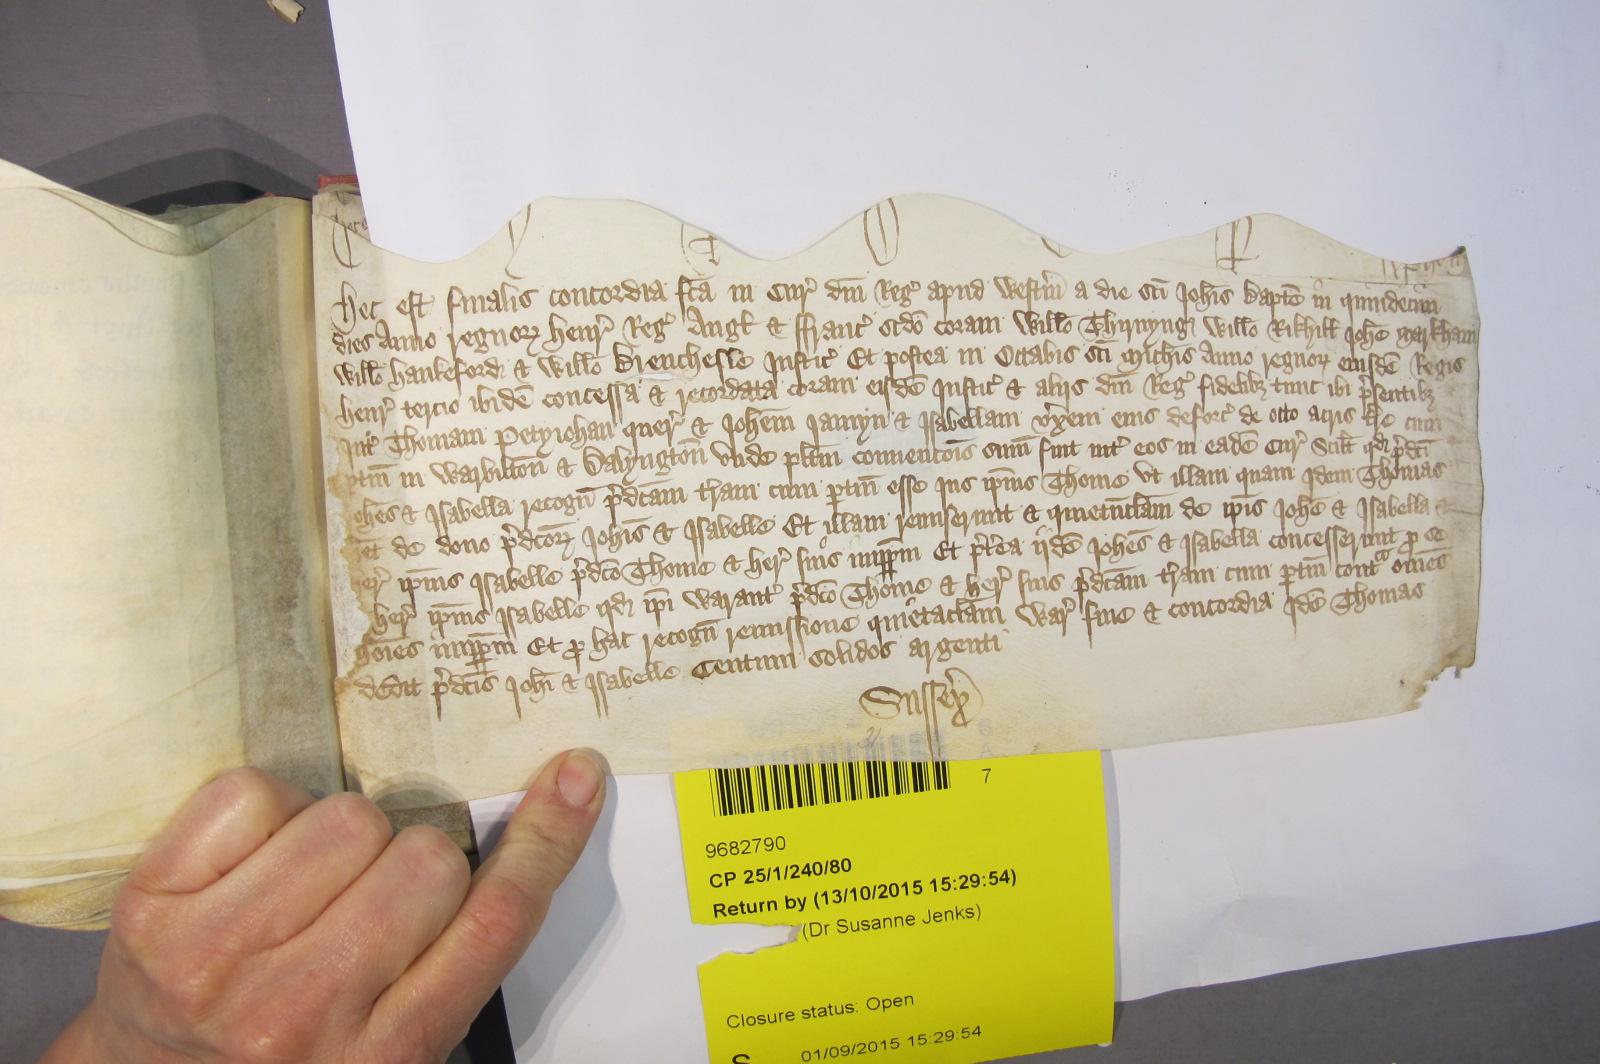 Hec est finalis concordia fca in Cur dni Reg apud Westm a die sci Johis Bapte in quindecim
dies Anno regnor Henr Reg Angl & Franc scdo coram Willo Thirnyng Willo Rikhill Johe Markham
Willo Hankeford & Willo Brenchesle Justic Et postea in Octabis sci Michis Anno regnor eiusde Regis
Henr tercio ibide concessa & recordata coram eisde Justic & alijs dni Reg fidelibz tunc ibi psentibz
Int Thomam Petyiohan quer & Johem Jamyn & Isabellam uxem eius deforc de octo acris tre cum
ptin in Warbilton & Dalyngton Unde plitm convencois sum fuit int eos in eade Cur Scilt qd pdci
Johes & Isabella recogn pdcam tram cum ptin esse Jus ipius Thome Ut illam quam Idem Thomas
de dono pdcor Johis & Isabelle Et illam remiserunt & quietuclam de ipis Johe & Isabella &
her ipius Isabelle pdco Thome & her suis imppm Et ptea ijde Johes & Isabella concesserunt p se
her ipius Isabelle qd ipi Warant pdco Thome & her suis pdcam tram cum ptin cont omes
hoies imppm Et p hac recogn remissione quietaclam War fine & concordia Ide Thomas
dedit pdcis Johi & Isabelle Centum solidos argenti
Sussex
7
9682790
CP 25/1/240/80
Return by (13/10/2015 15:29:54)
(Dr Susanne Jenks)
Closure status: Open
01/09/2015 15:29:54